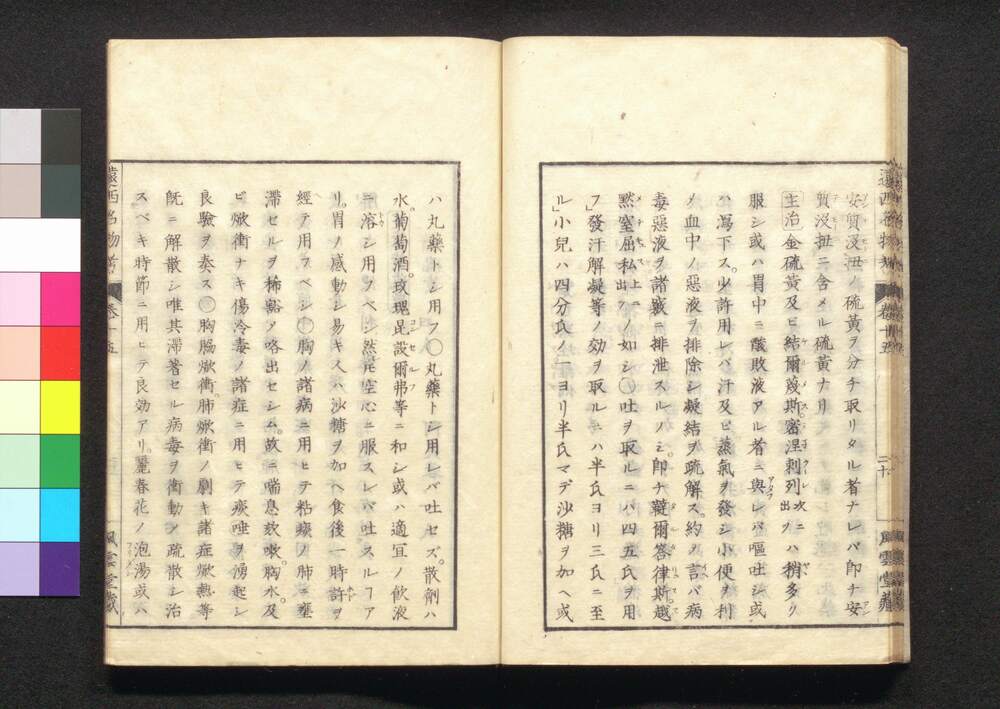 安質没扭ノ硫黄ヲ分チ取リタル者ナレバ即ナ安
質没扭ニ含メル硫黄ナリ
主治金硫黄及ビ結爾蔑斯密涅剌列水ニ出ヅハ稍多ク
服シ或ハ胃中ニ酸敗液アル者ニ與レバ嘔吐シ或
ハ瀉下ス。少許用レバ汗及ビ蒸氣ヲ發シ小便ヲ利
シ血中ノ惡液ヲ排除シ凝結ヲ疏解ス。約メ言バ病
毒惡液ヲ諸竅ニ排泄スルノミ。即チ韃爾答律斯越
黙窒屈私上ニ出ヅノ如シ○吐ヲ取ルニハ四五氏ヲ用
フ發汗解凝等ノ効ヲ取ルニハ半氏ヨリ三氏ニ至
ル小兒ハ四分氏ノ一ヨリ半氏マデ沙糖ヲ加ヘ或
ハ丸藥トシ用フ○丸藥トシ用レバ吐セズ。散劑ハ
水葡萄酒。玫瑰昆設爾弗等ニ和シ或ハ適宜ノ飲液
ニ溶シ用フベシ然𪜈空心ニ服スレバ吐スルフア
リ。胃ノ感動シ易キ人ハ沙糖ヲ加ヘ食後一時許ヲ
經テ用フベシ○胸ノ諸病ニ用ヒテ粘痰ノ肺ニ壅
滞セルヲ稀豁メ咯出セシム。故ニ喘息欬嗽。胸水及
ビ焮衝ナキ傷冷毒ノ諸症ニ用ヒテ痰唾ヲ湧起シ
良驗ヲ奏ス○胸膓焮衝。肺焮衝ノ劇キ諸症焮熱等
既ニ解散シ唯其滞著セル病毒ヲ衝動メ疏散シ治
スベキ時節ニ用ヒテ良効アリ。麗春花ノ泡湯或ハ
遠西名物考
卷十五
二十
風雲堂藏